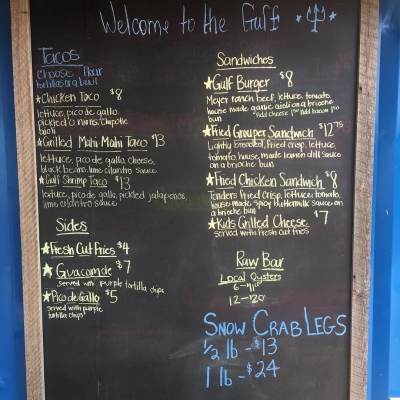 Welcome to the Gulf
Tacos
Choose flour
tortillas or a bowl
Chicken Taco $8
lettuce, pico de gallo,
pickled onions, Chipotle
aioli
Grilled Mahi-Mahi Taco $13
lettuce, pico de gallo, cheese,
black beans, lime cilantro sauce
Gulf Shrimp Taco $13
lettuce, pico de gallo, pickled jalapenos,
lime cilantro sauce
Sides
Fresh Cut Fries $4
Guacamole $7
served with purple tortilla chips
Pico de Gallo $5
served with purple
tortilla chips
Sandwiches
Gulf Burger $8
Meyer ranch beef, lettuce, tomato,
house made garlic aioli on a brioche
bun
Add Cheese Add bacon
Fried Grouper Sandwich $12.75
Lightly breaded, Fried crisp, lettuce,
tomato, house made lemon dill sauce
on a brioche bun
Fried Chicken Sandwich $8
Tenders Fried crisp, lettuce, tomato,
house made spicy buttermilk sauce on
a brioche bun
Kids Grilled Cheese $7
served with fresh cut fries
Raw Bar
Local Oysters
6-$11
12-$20
Snow Crab Legs
1/2 lb - $13
1 lb - $24